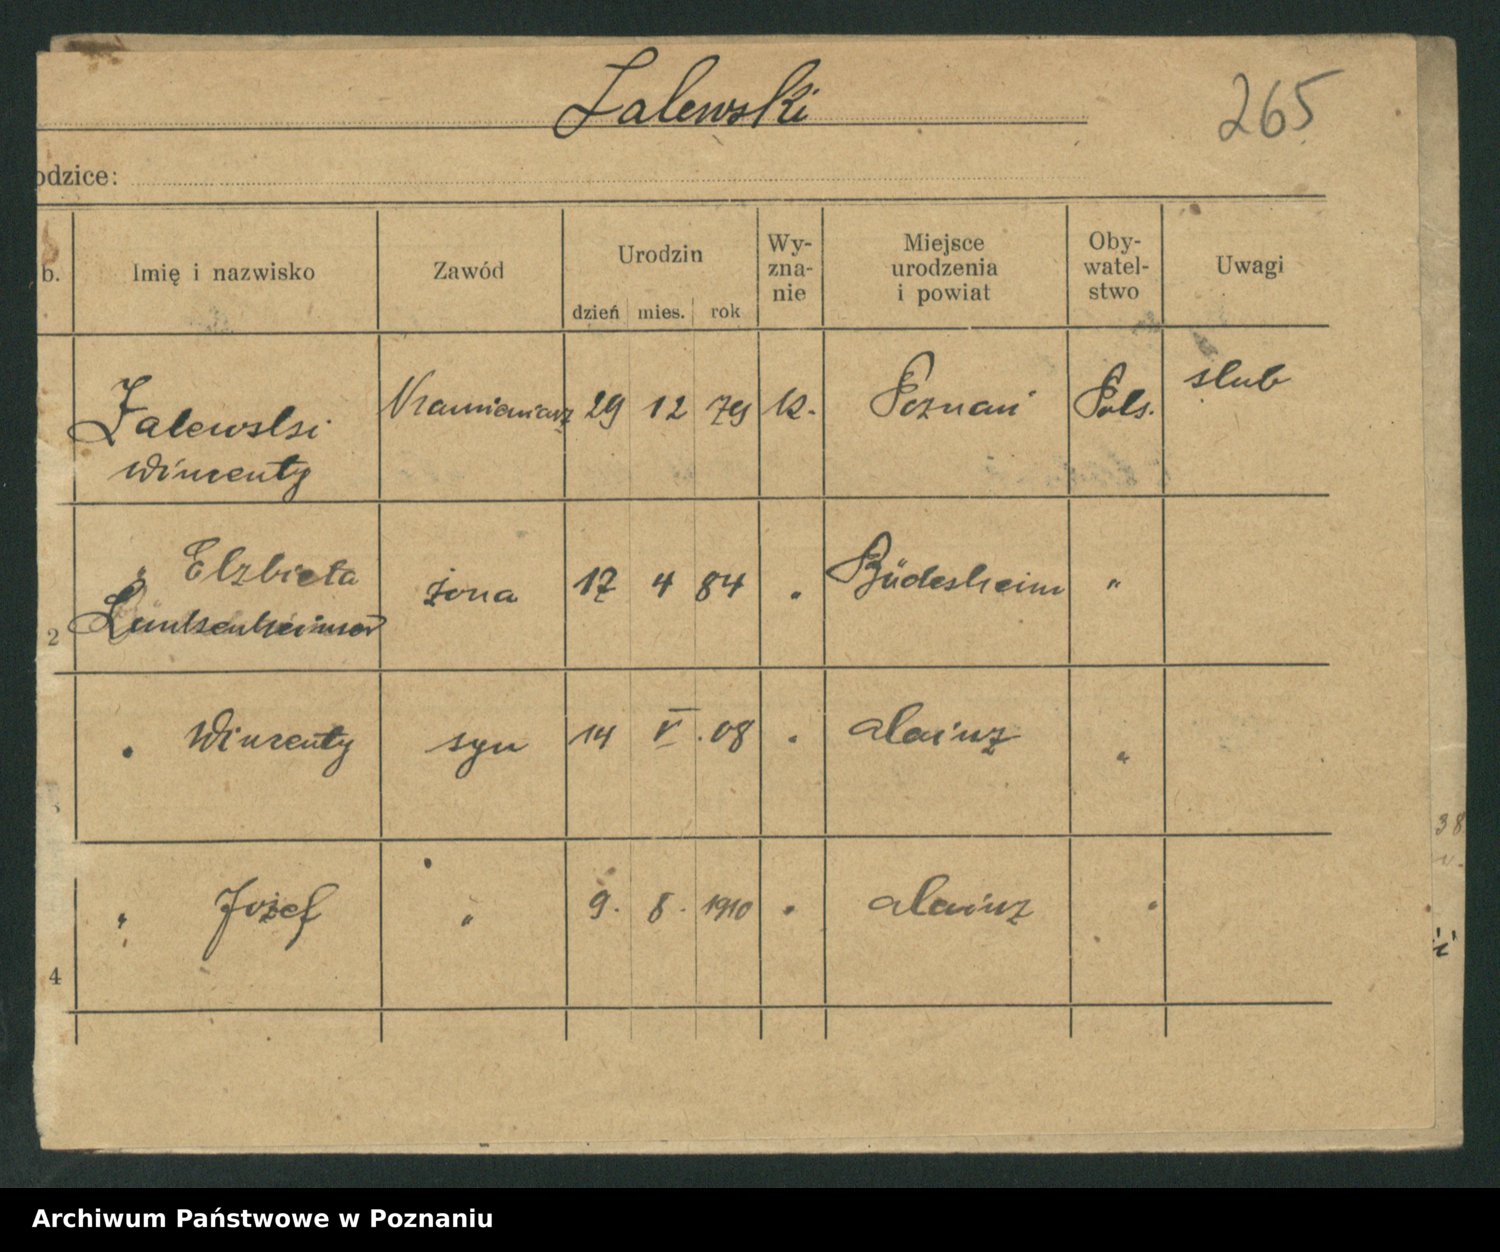 Zalewski
265
odzice:
b. Imię i nazwisko Zawód Urodzin dzień mies. rok Wy-zna-nie Miejsce urodzenia i powiat Oby-watel-stwo Uwagi
Zalewski Kamieniarz 29 12 79 K. Poznań Pols. slub
Wincenty
" Elzbieta żona 17 4 84 " Büdesheim "
2
" Wincenty syn 14 V. 08 " Mainz "
" Józef " 9. 8. 1910 " Mainz "
4
38
Archiwum Państwowe w Poznaniu